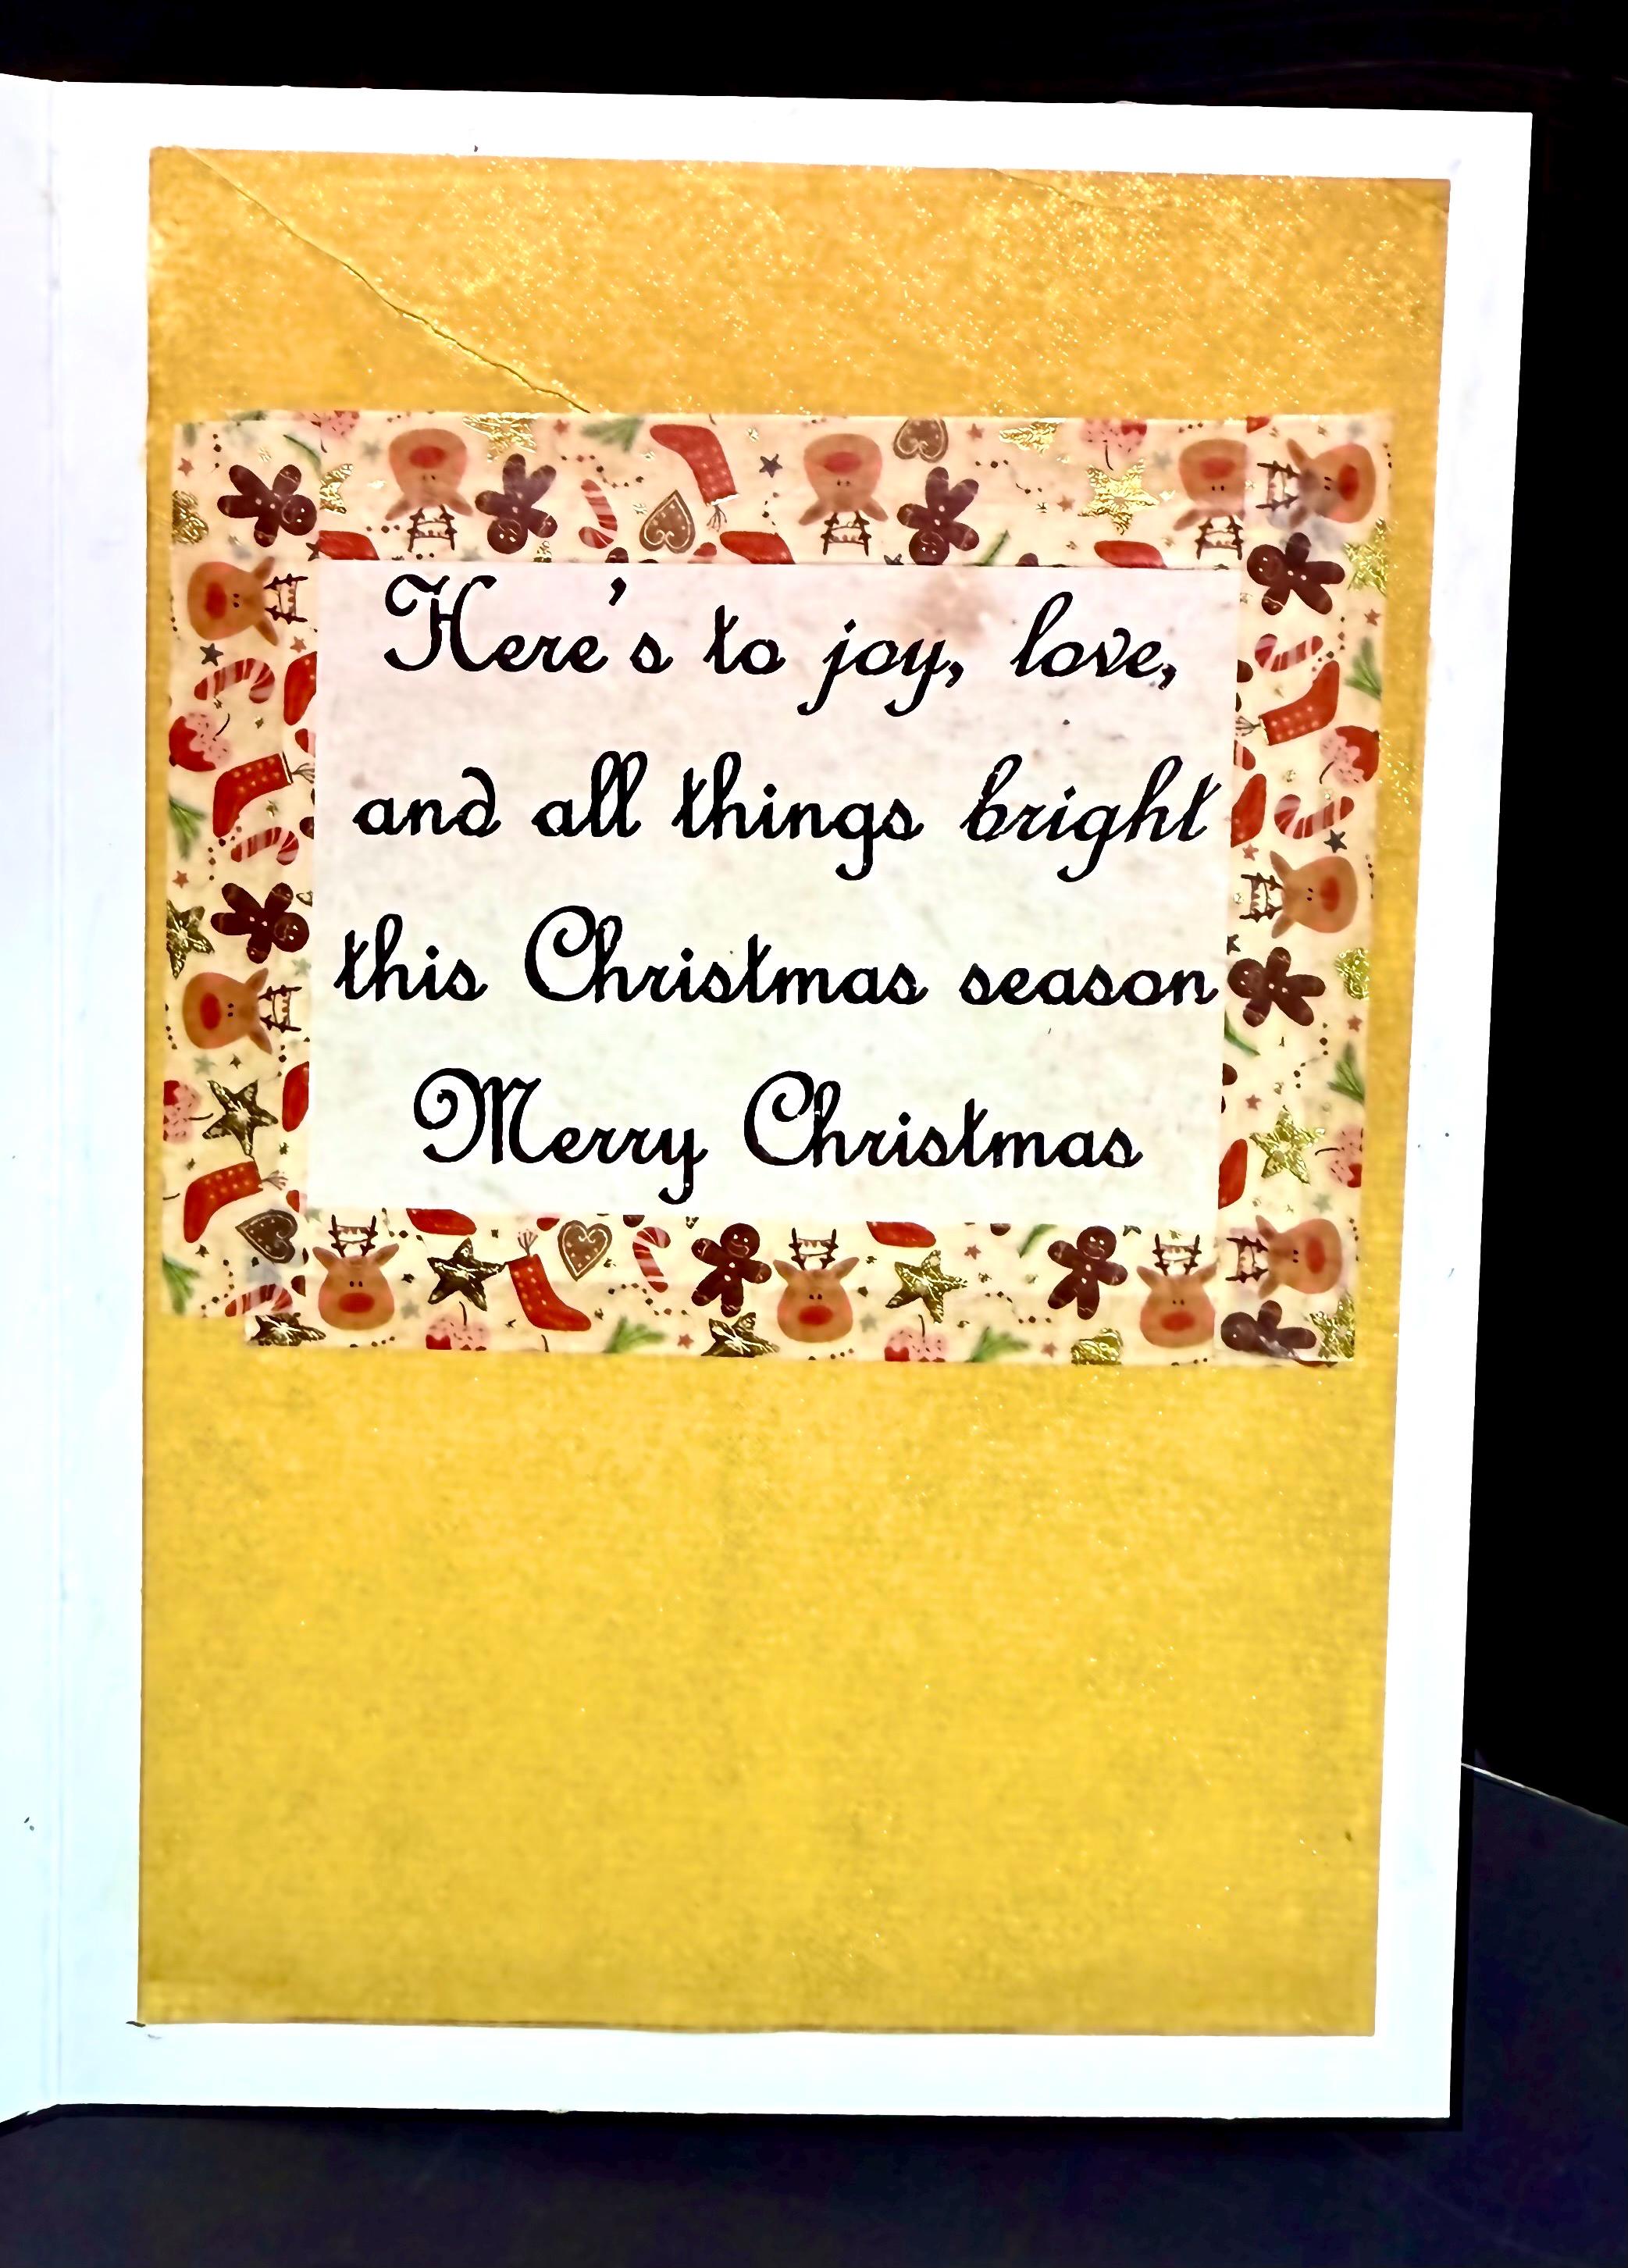 Here's to joy, love,
and all things bright
this Christmas season
Merry Christmas